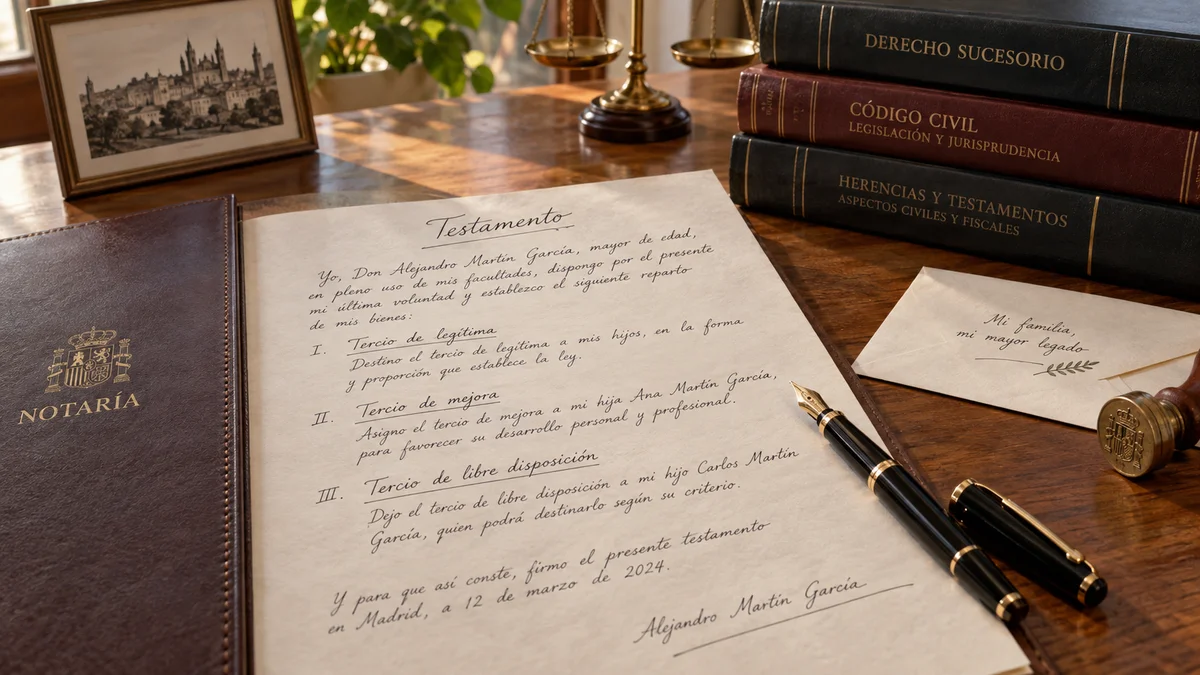 DERECHO SUCESORIO
CÓDIGO CIVIL
LEGISLACIÓN Y JURISPRUDENCIA
HERENCIAS Y TESTAMENTOS
ASPECTOS CIVILES Y FISCALES
NOTARÍA
Testamento
Yo, Don Alejandro Martín García, mayor de edad,
en pleno uso de mis facultades, dispongo por el presente
mi última voluntad y establezco el siguiente reparto
de mis bienes:
I. Tercio de legítima
Destino el tercio de legítima a mis hijos, en la forma
y proporción que establece la ley.
II. Tercio de mejora
Asigno el tercio de mejora a mi hija Ana Martín García,
para favorecer su desarrollo personal y profesional.
III. Tercio de libre disposición
Dejo el tercio de libre disposición a mi hijo Carlos Martín
García, quien podrá destinarlo según su criterio.
Y para que así conste, firmo el presente testamento
en Madrid, a 12 de marzo de 2024.
Alejandro Martín García
Mi familia,
mi mayor legado